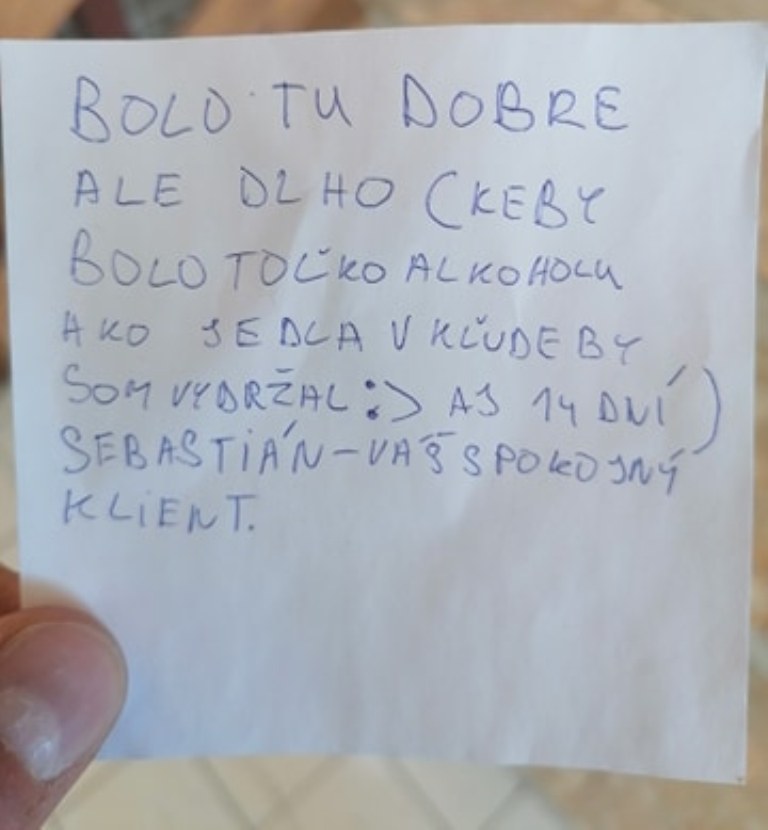 BOLO TU DOBRE
ALE DLHO (KEBY
BOLO TOĽKO ALKOHOLU
AKO JEDLA V KĽUDE BY
SOM VYDRŽAL :) AJ 14 DNÍ)
SEBASTIÁN - VÁŠ SPOKOJNÝ
KLIENT.